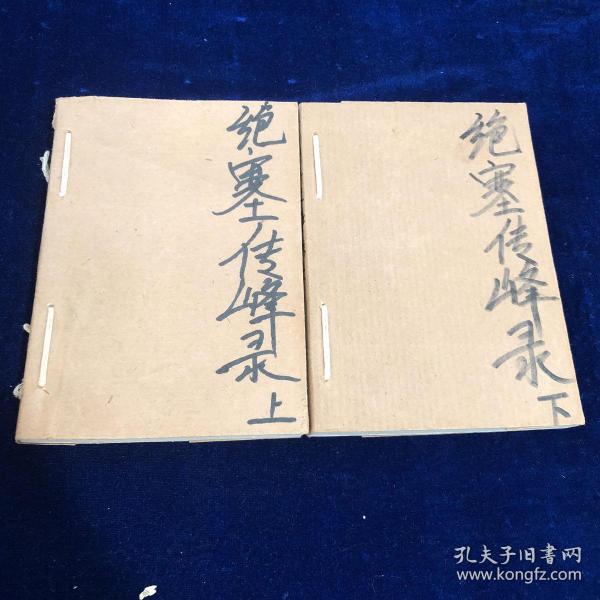 绝塞传峰录
上
绝塞传峰录
下
孔夫子旧书网
www.kongfz.com